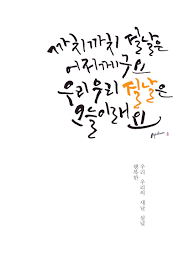 까치까치 설날은
어저께구요
우리우리 설날은
오늘이래요
우리 우리의 새날 설날
행복한